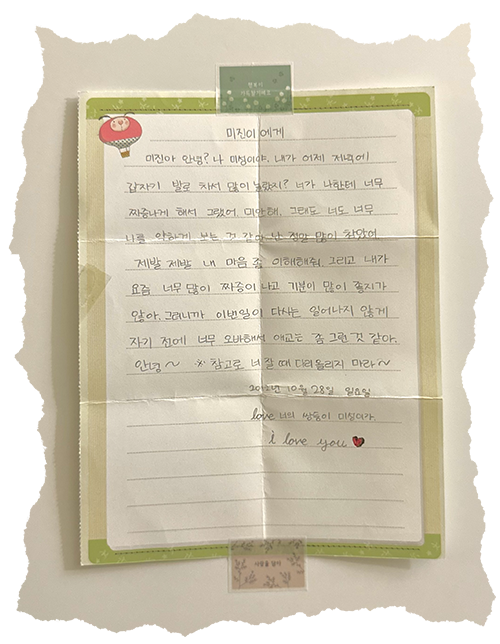 미진이에게
미진아 안녕? 나 미성이야. 내가 어제 저녁에
갑자기 발로 차서 많이 놀랐지? 너가 나한테 너무
짜증나게 해서 그랬어. 미안해. 그래도 너도 너무
나를 약하게 보는 것 같아 난 정말 많이 참았어.
제발 제발 내 마음 좀 이해해줘. 그리고 내가
요즘 너무 많이 짜증이 나고 기분이 많이 좋지가
않아. 그러니까 이번일이 다시는 일어나지 않게
자기 전에 너무 오바해서 애교는 좀 그런 것 같아.
안녕~ ※ 참고로 너 잘 때 다리올리지 마라~
10월 28일 일요일
love 너의 쌍둥이 미성이가.
i love you